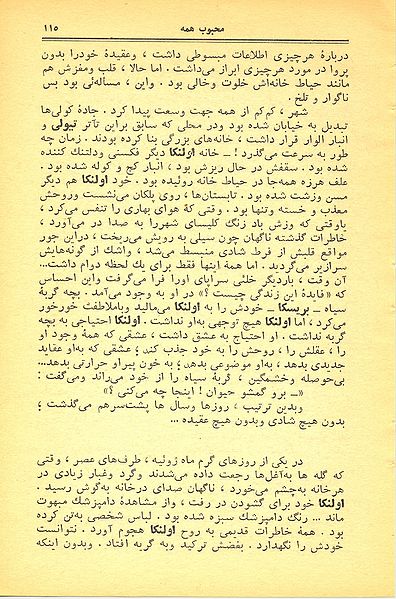 محبوب همه
۱۱۵
دربارهٔ هرچیزی اطلاعات مبسوطی داشت ، وعقیدهٔ خودرا بدون
پروا در مورد هرچیزی ابراز می‌داشت . اما حالا ، قلب ومغزش هم
مانند حیاط خانه‌اش خلوت وخالی بود . واین ، مسأله‌ئی بود بس
ناگوار و تلخ .
شهر ، کم‌کم از همه جهت وسعت پیدا کرد . جادهٔ کولی‌ها
تبدیل به خیابان شده بود ودر محلی که سابق براین تآتر تیولی و
انبار الوار قرار داشت ، خانه‌های بزرگی بنا کرده بودند. زمان چه
طور به سرعت می‌گذرد ! ــ خانه اولنکا دیگر نکستنی ودلتنك کننده
شده بود . سقفش در حال ریزش بود ، انبار کج و کوله شده بود .
علف هرزه همه‌جا در حیاط خانه روئیده بود. خود اولنکا هم دیگر
مسن وزشت شده بود . تابستان‌ها ، روی پلکان می‌نشست وروحش
معذب و خسته وتنها بود . وقتی که هوای بهاری را تنفس می‌کرد ،
یاوقتی که وزش باد زنگ کلیسای شهررا به صدا در می‌آورد ،
خاطرات گذشته ناگهان چون سیلی به رویش می‌ریخت ، دراین جور
مواقع قلبش از فرط شادی منبسط می‌شد ، واشك از گونه‌هایش
سرازیر می‌گردید . اما همهٔ اینها فقط برای یك لحظه دوام داشت...
آن وقت ، باردیگر خلئی سراپای اورا فرا می‌گرفت واین احساس
که «فایدهٔ این زندگی چیست ؟» در او به وجود می‌آمد . بچه گربهٔ
سیاه ــ بریسکا ــ خودش را به اولنکا می‌مالید وباملاطفت خورخور
می‌کرد ، اما اولنکا هیچ توجهی به‌او نداشت . اولنکا احتیاجی به بچه
گربه نداشت . او احتیاج به عشق داشت ، عشقی که همهٔ وجود او
را ، عقلش را ، روحش را به خود جذب کند ؛ عشقی که به‌او عقاید
جدیدی بدهد ، به‌او موضوعی بدهد ؛ به خون پیراو حرارتی بدهد...
بی‌حوصله وخشمگین ، گربهٔ سیاه را از خود می‌راند ومی‌گفت :
«ــ برو گمشو حیوان ! اینجا چه می‌کنی ؟»
وبدین ترتیب ، روزها وسال ها پشت‌سرهم می‌گذشت ؛
بدون هیچ شادی وبدون هیچ عقیده ...
در یکی از روزهای گرم ماه ژوئیه ، طرف‌های عصر ، وقتی
که گله ها به‌آغل‌ها رجعت داده می‌شدند وگرد وغبار زیادی در
هرخانه به‌چشم می‌خورد ، ناگهان صدای درخانه به‌گوش رسید .
اولنکا خود برای گشودن در رفت ، واز مشاهدهٔ دامپزشك مبهوت
ماند ... رنگ دامپزشك سبزه شده بود . لباس شخصی به‌تن کرده
بود . همهٔ خاطرات قدیمی به روح اولنکا هجوم آورد . نتوانست
خودش را نگهدارد . بغضش ترکید وبه گریه افتاد . وبدون اینکه